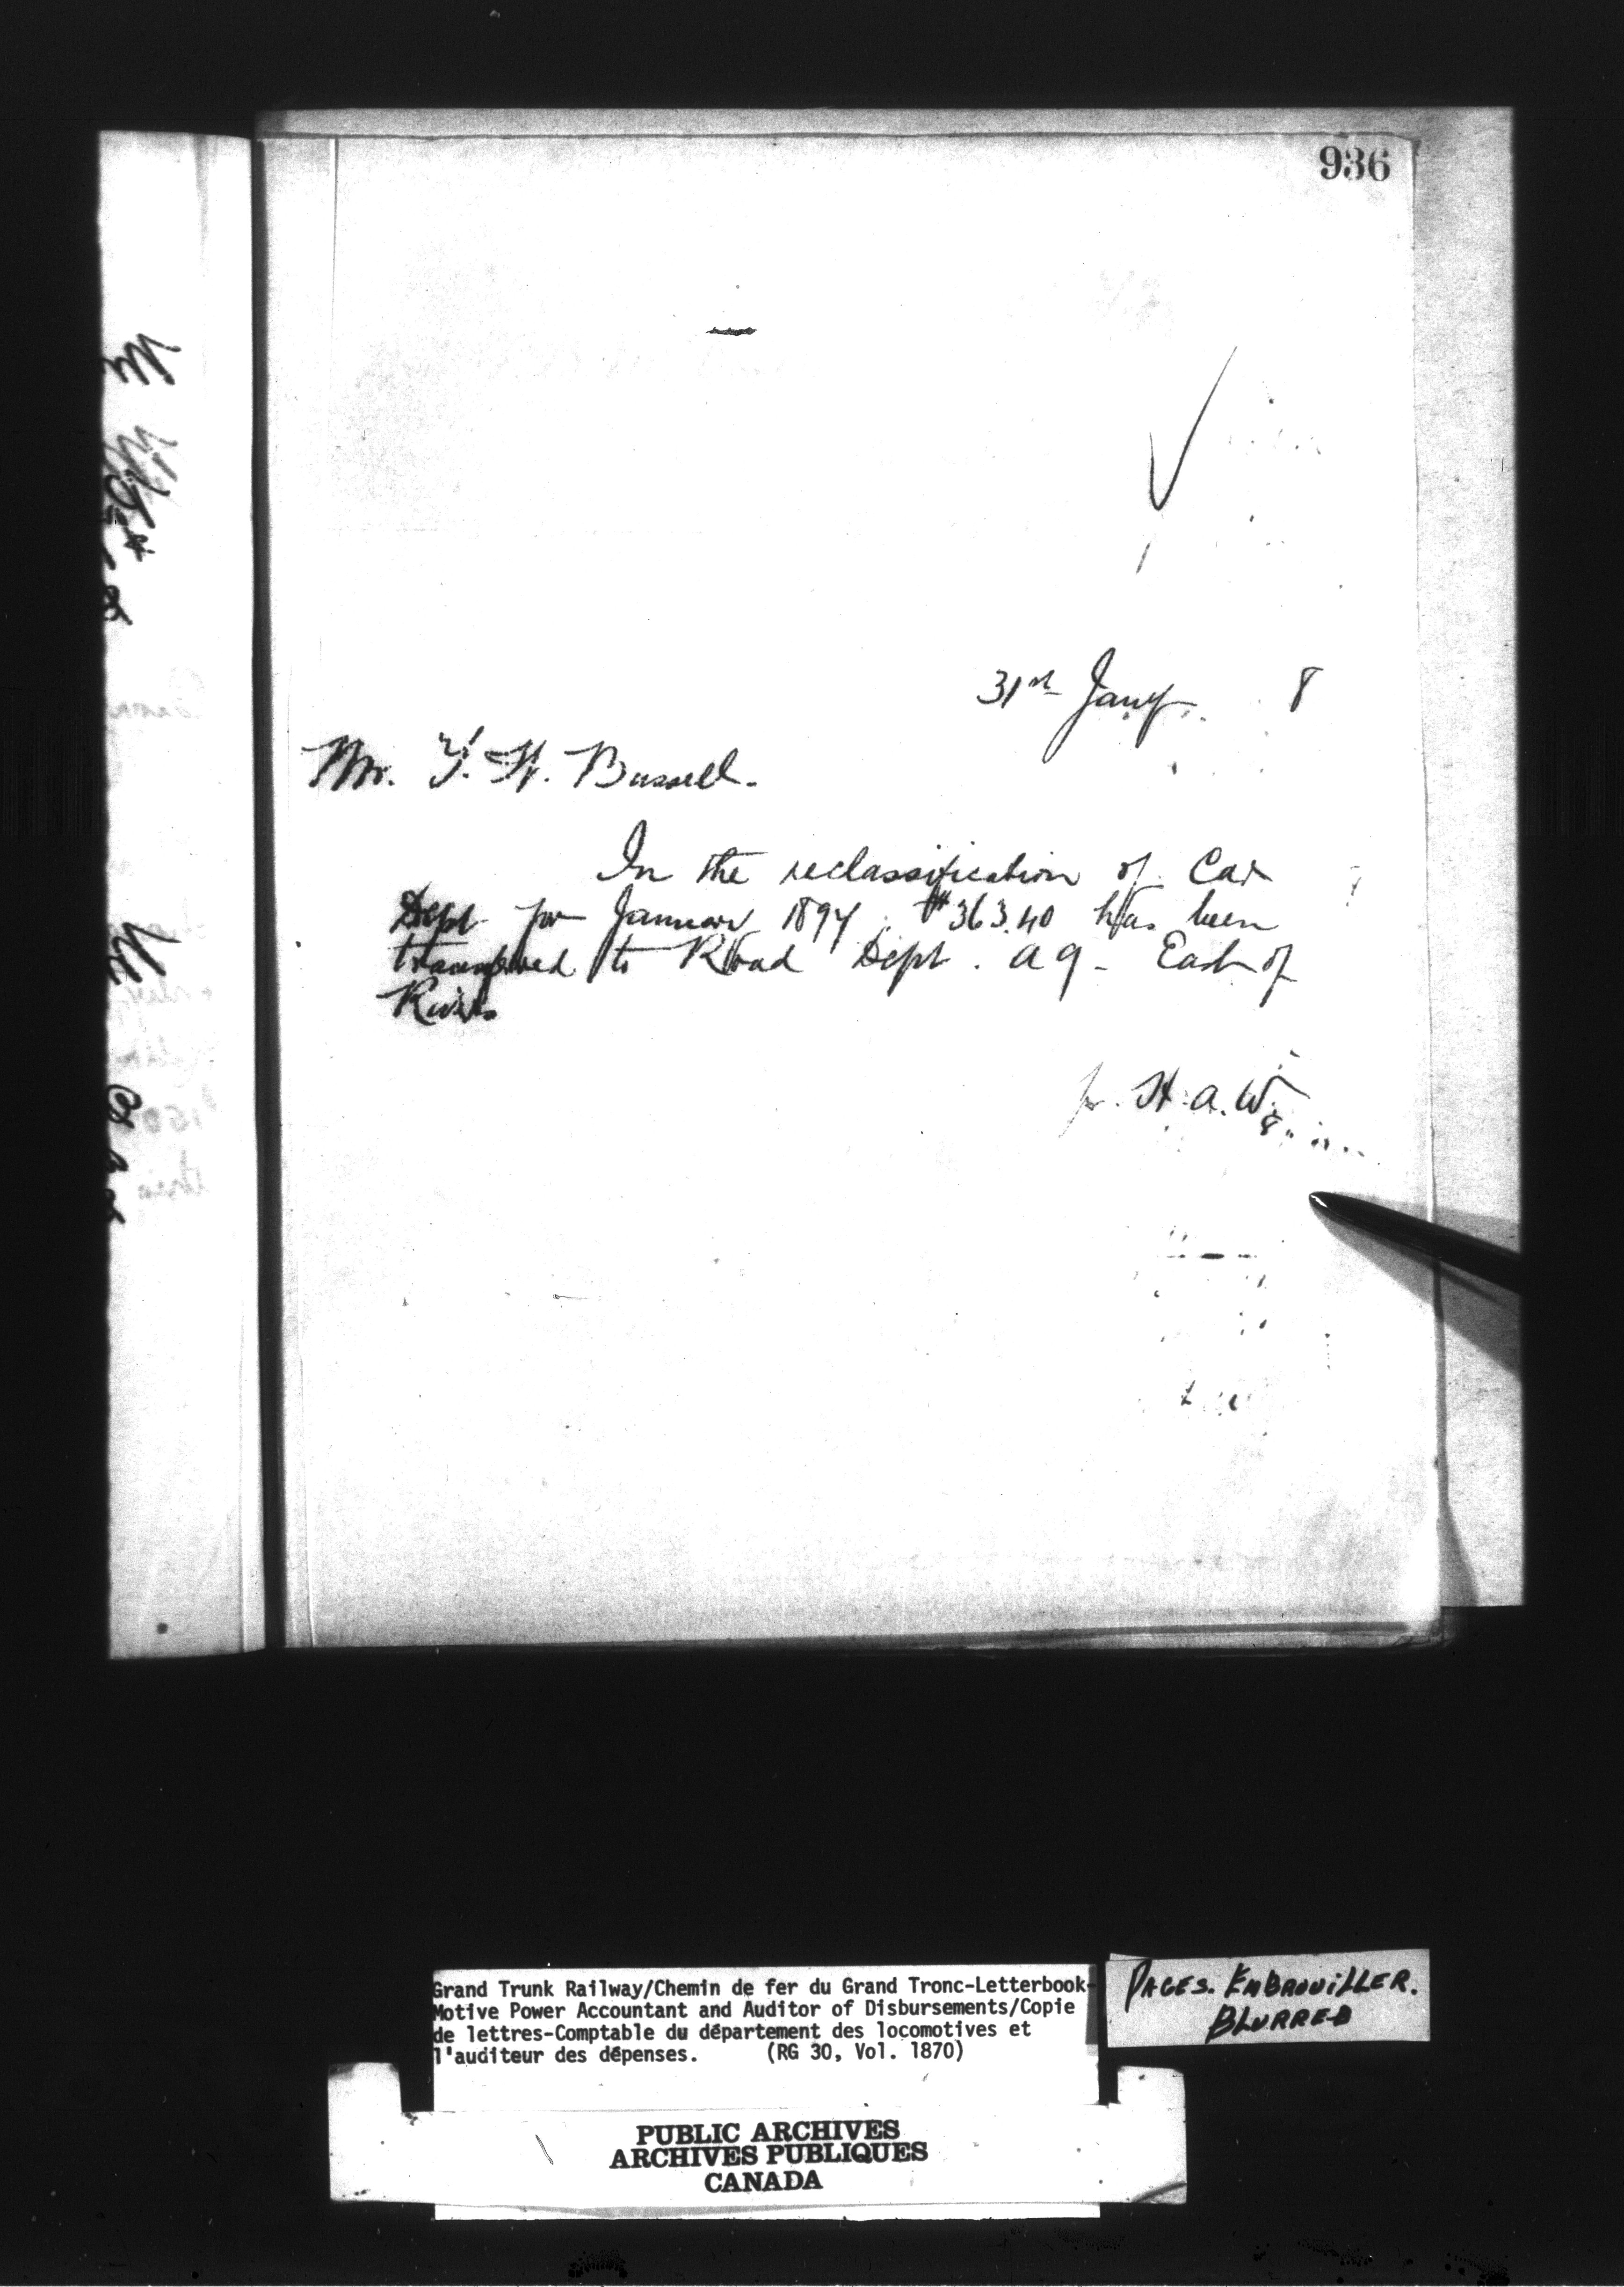 936
31st Jany. 8
Mr. T. H. Bussell.
In the reclassification of Car
Dept for January 1894 $363.40 has been
transferred to Road Dept. a9 - East of
River
for H. A. W
Grand Trunk Railway/Chemin de fer du Grand Tronc-Letterbook-
Motive Power Accountant and Auditor of Disbursements/Copie
de lettres-Comptable du département des locomotives et
l'auditeur des dépenses. (RG 30, Vol. 1870)
PAGES. EMBROUILLER.
BLURRED
PUBLIC ARCHIVES
ARCHIVES PUBLIQUES
CANADA